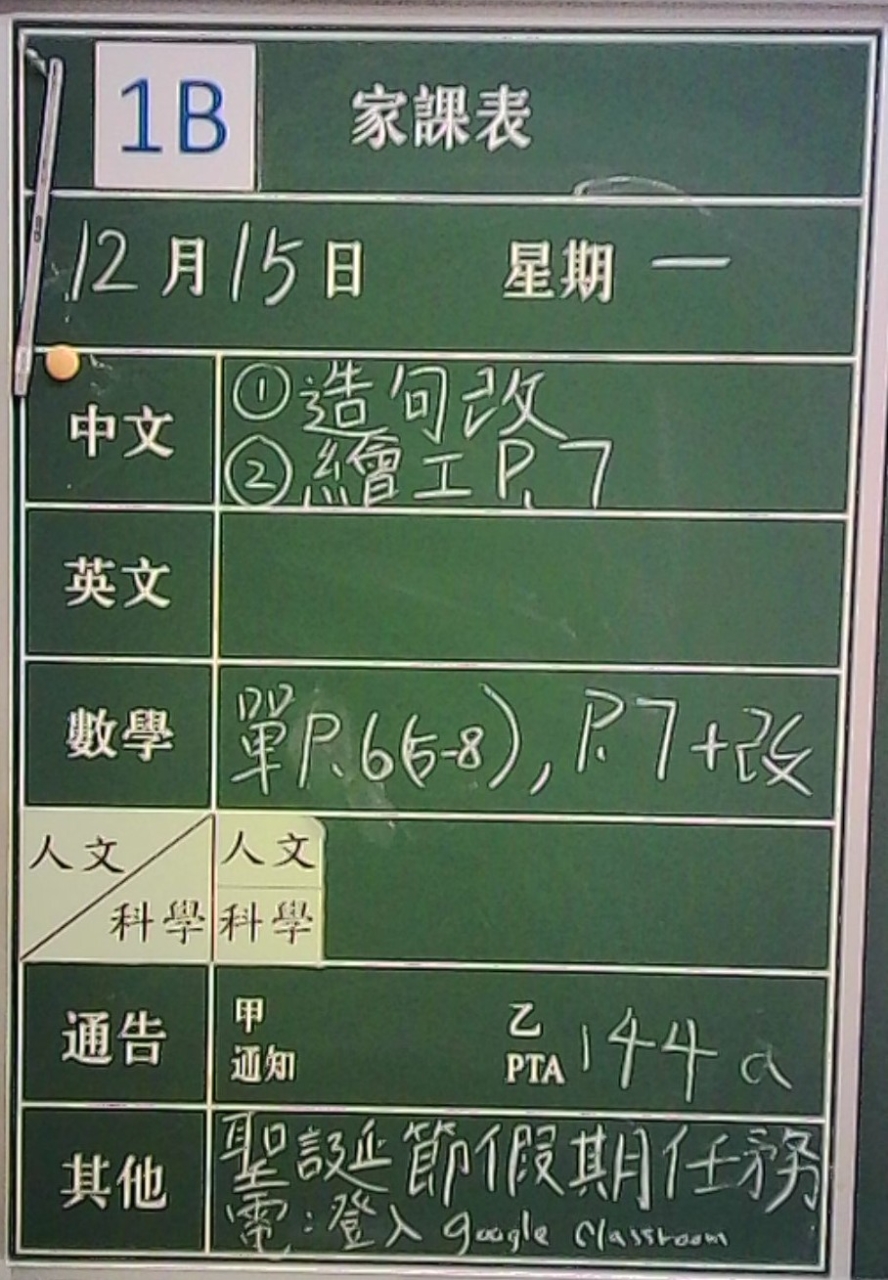 1B 家課表
12月15日 星期一
中文 ①造句改
②繪工P.7
英文
數學 單P.6(5-8), P.7+改
人文 人文
科學 科學
通告 甲 乙
通知 PTA 144a
其他 聖誕節假期任務
電:登入 google classroom